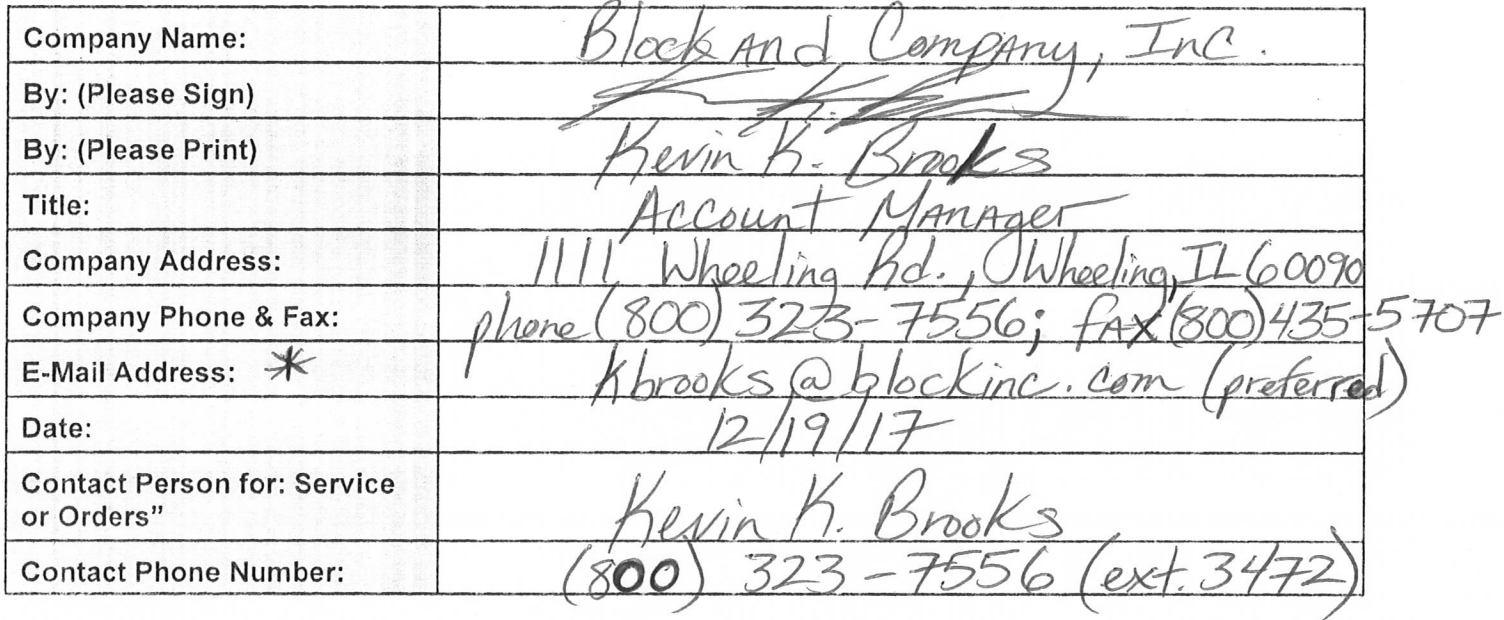 Company Name: Block And Company, Inc.
By: (Please Sign)
By: (Please Print) Kevin K. Brooks
Title: Account Manager
Company Address: 1111 Wheeling Rd., Wheeling, IL 60090
Company Phone & Fax: phone (800) 323-7556; fax (800) 435-5707
E-Mail Address: * Kbrooks@blockinc.com (preferred)
Date: 12/19/17
Contact Person for: Service
or Orders” Kevin K. Brooks
Contact Phone Number: (800) 323-7556 (ext. 3472)